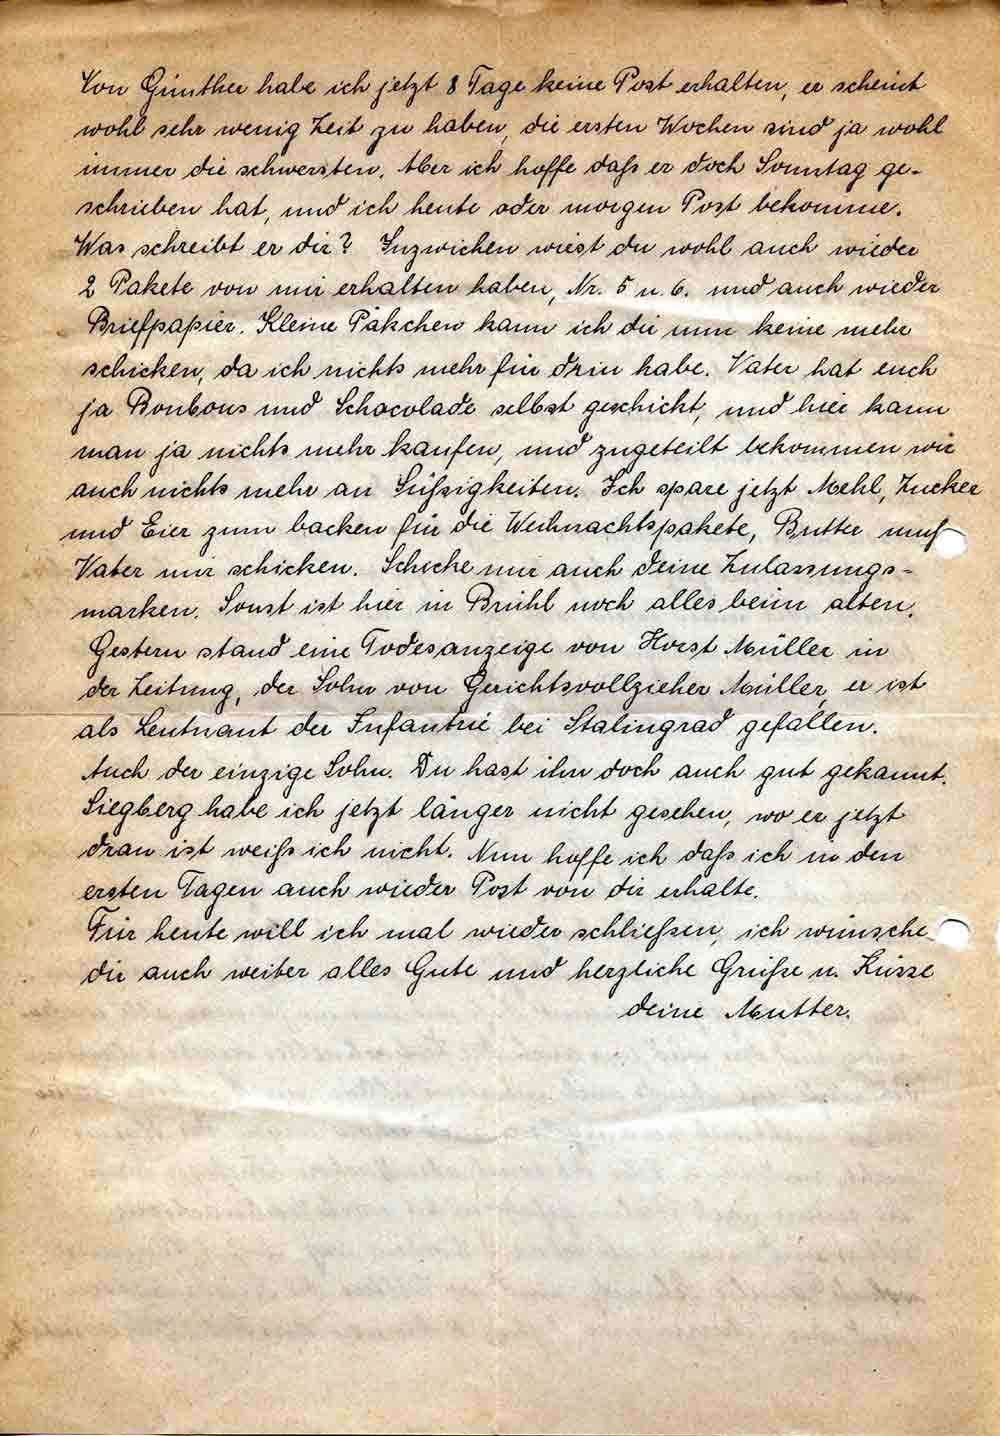 Von Günther habe ich jetzt 8 Tage keine Post erhalten, er scheint
wohl sehr wenig Zeit zu haben, die ersten Wochen sind ja wohl
immer die schwersten. Aber ich hoffe daß er doch Sonntag ge-
schrieben hat, und ich heute oder morgen Post bekomme.
Was schreibt er dir? Inzwichen wirst du wohl auch wieder
2 Pakete von mir erhalten haben, Nr. 5 u. 6. und auch wieder
Briefpapier. Kleine Päkchen kann ich dir nun keine mehr
schicken, da ich nichts mehr für drin habe. Vater hat euch
ja Bonbons und Schocolade selbst geschickt, und hier kann
man ja nichts mehr kaufen, und zugeteilt bekommen wir
auch nichts mehr an Süßigkeiten. Ich spare jetzt Mehl, Zucker
und Eier zum backen für die Weihnachtspakete, Butter muß
Vater mir schicken. Schicke mir auch deine Zulassungs-
marken. Sonst ist hier in Brühl noch alles beim alten.
Gestern stand eine Todesanzeige von Horst Müller in
der Zeitung, der Sohn von Gerichtsvollzieher Müller, er ist
als Leutnant der Infantrie bei Stalingrad gefallen.
Auch der einzige Sohn. Du hast ihn doch auch gut gekannt.
Siegberg habe ich jetzt länger nicht gesehen, wo er jetzt
dran ist weiß ich nicht. Nun hoffe ich daß ich in den
ersten Tagen auch wieder Post von dir erhalte.
Für heute will ich mal wieder schließen, ich wünsche
dir auch weiter alles Gute und herzliche Grüße u. Küsse
deine Mutter.